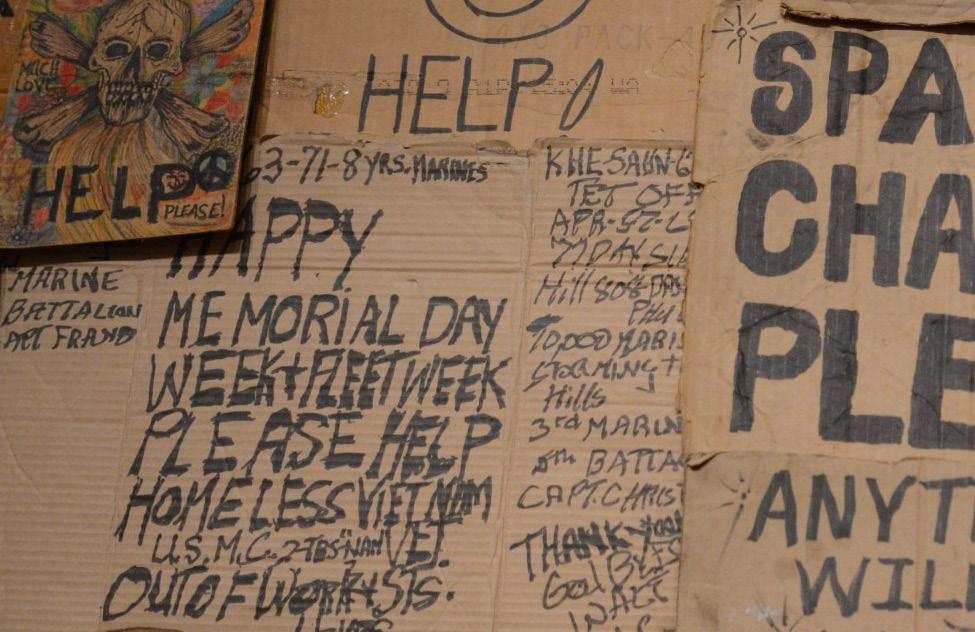 MUCH
LOVE
HELP
PLEASE!
HELP!
63-71-8 YRS. MARINES
HAPPY
MEMORIAL DAY
WEEK + FLEET WEEK
PLEASE HELP
HOMELESS VIETNAM
U.S.M.C. 2-TOS-NAM VET.
OUT OF WORK + STS.
MARINE
BATTALION
KHE-SAHN-6
TET OFF
77 DAY SI
Hill 808
70,000 MARI
STORMING +
Hills
3rd MARIN
5th BATTA
CAPT. CHRIS
THANK YOU
GOD BLES
SPA
CHA
PLE
ANYT
WIL